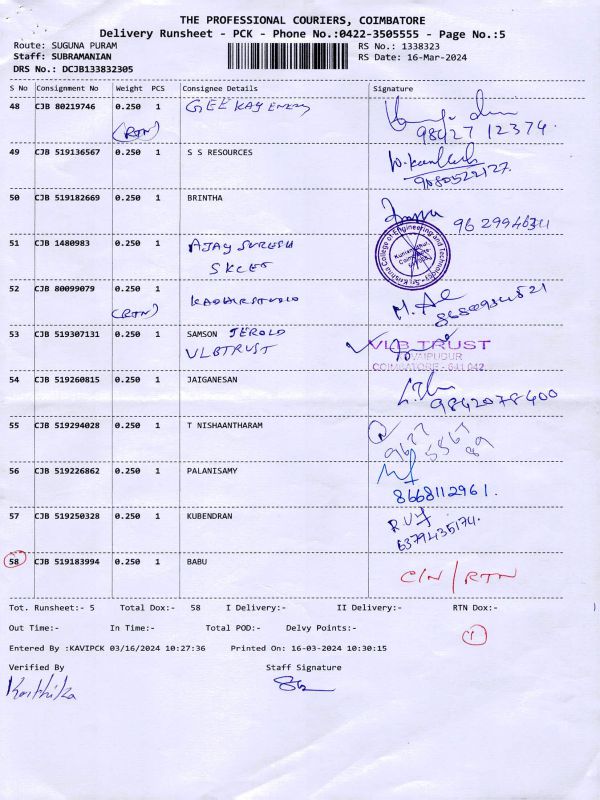 THE PROFESSIONAL COURIERS, COIMBATORE
Delivery Runsheet - PCK - Phone No.:0422-3505555 - Page No.:5
Route: SUGUNA PURAM
RS No.: 1338323
Staff: SUBRAMANIAN
RS Date: 16-Mar-2024
DRS No.: DCJB133832305
S No Consignment No Weight PCS Consignee Details Signature
48 CJB 80219746 0.250 1 GEE KAY ENERGY
(RTN) 98427 12374
49 CJB 519136567 0.250 1 S S RESOURCES
9080522127
50 CJB 519182669 0.250 1 BRINTHA
51 CJB 1480983 0.250 1 AJAY SURESH
SKCET
52 CJB 80099079 0.250 1
(RTN)
53 CJB 519307131 0.250 1 SAMSON JEROLD
VLBTRUST VLB TRUST
COIMBATORE - 641 042
54 CJB 519260815 0.250 1 JAIGANESAN
9842078400
55 CJB 519294028 0.250 1 T NISHAANTHARAM
9677
5567
89
56 CJB 519226862 0.250 1 PALANISAMY
8668112961.
57 CJB 519250328 0.250 1 KUBENDRAN
6379435174.
58 CJB 519183994 0.250 1 BABU
C/N / RTN
Tot. Runsheet:- 5 Total Dox:- 58 I Delivery:- II Delivery:- RTN Dox:- )
Out Time:- In Time:- Total POD:- Delvy Points:-
1
Entered By :KAVIPCK 03/16/2024 10:27:36 Printed On: 16-03-2024 10:30:15
Verified By Staff Signature
Karthika